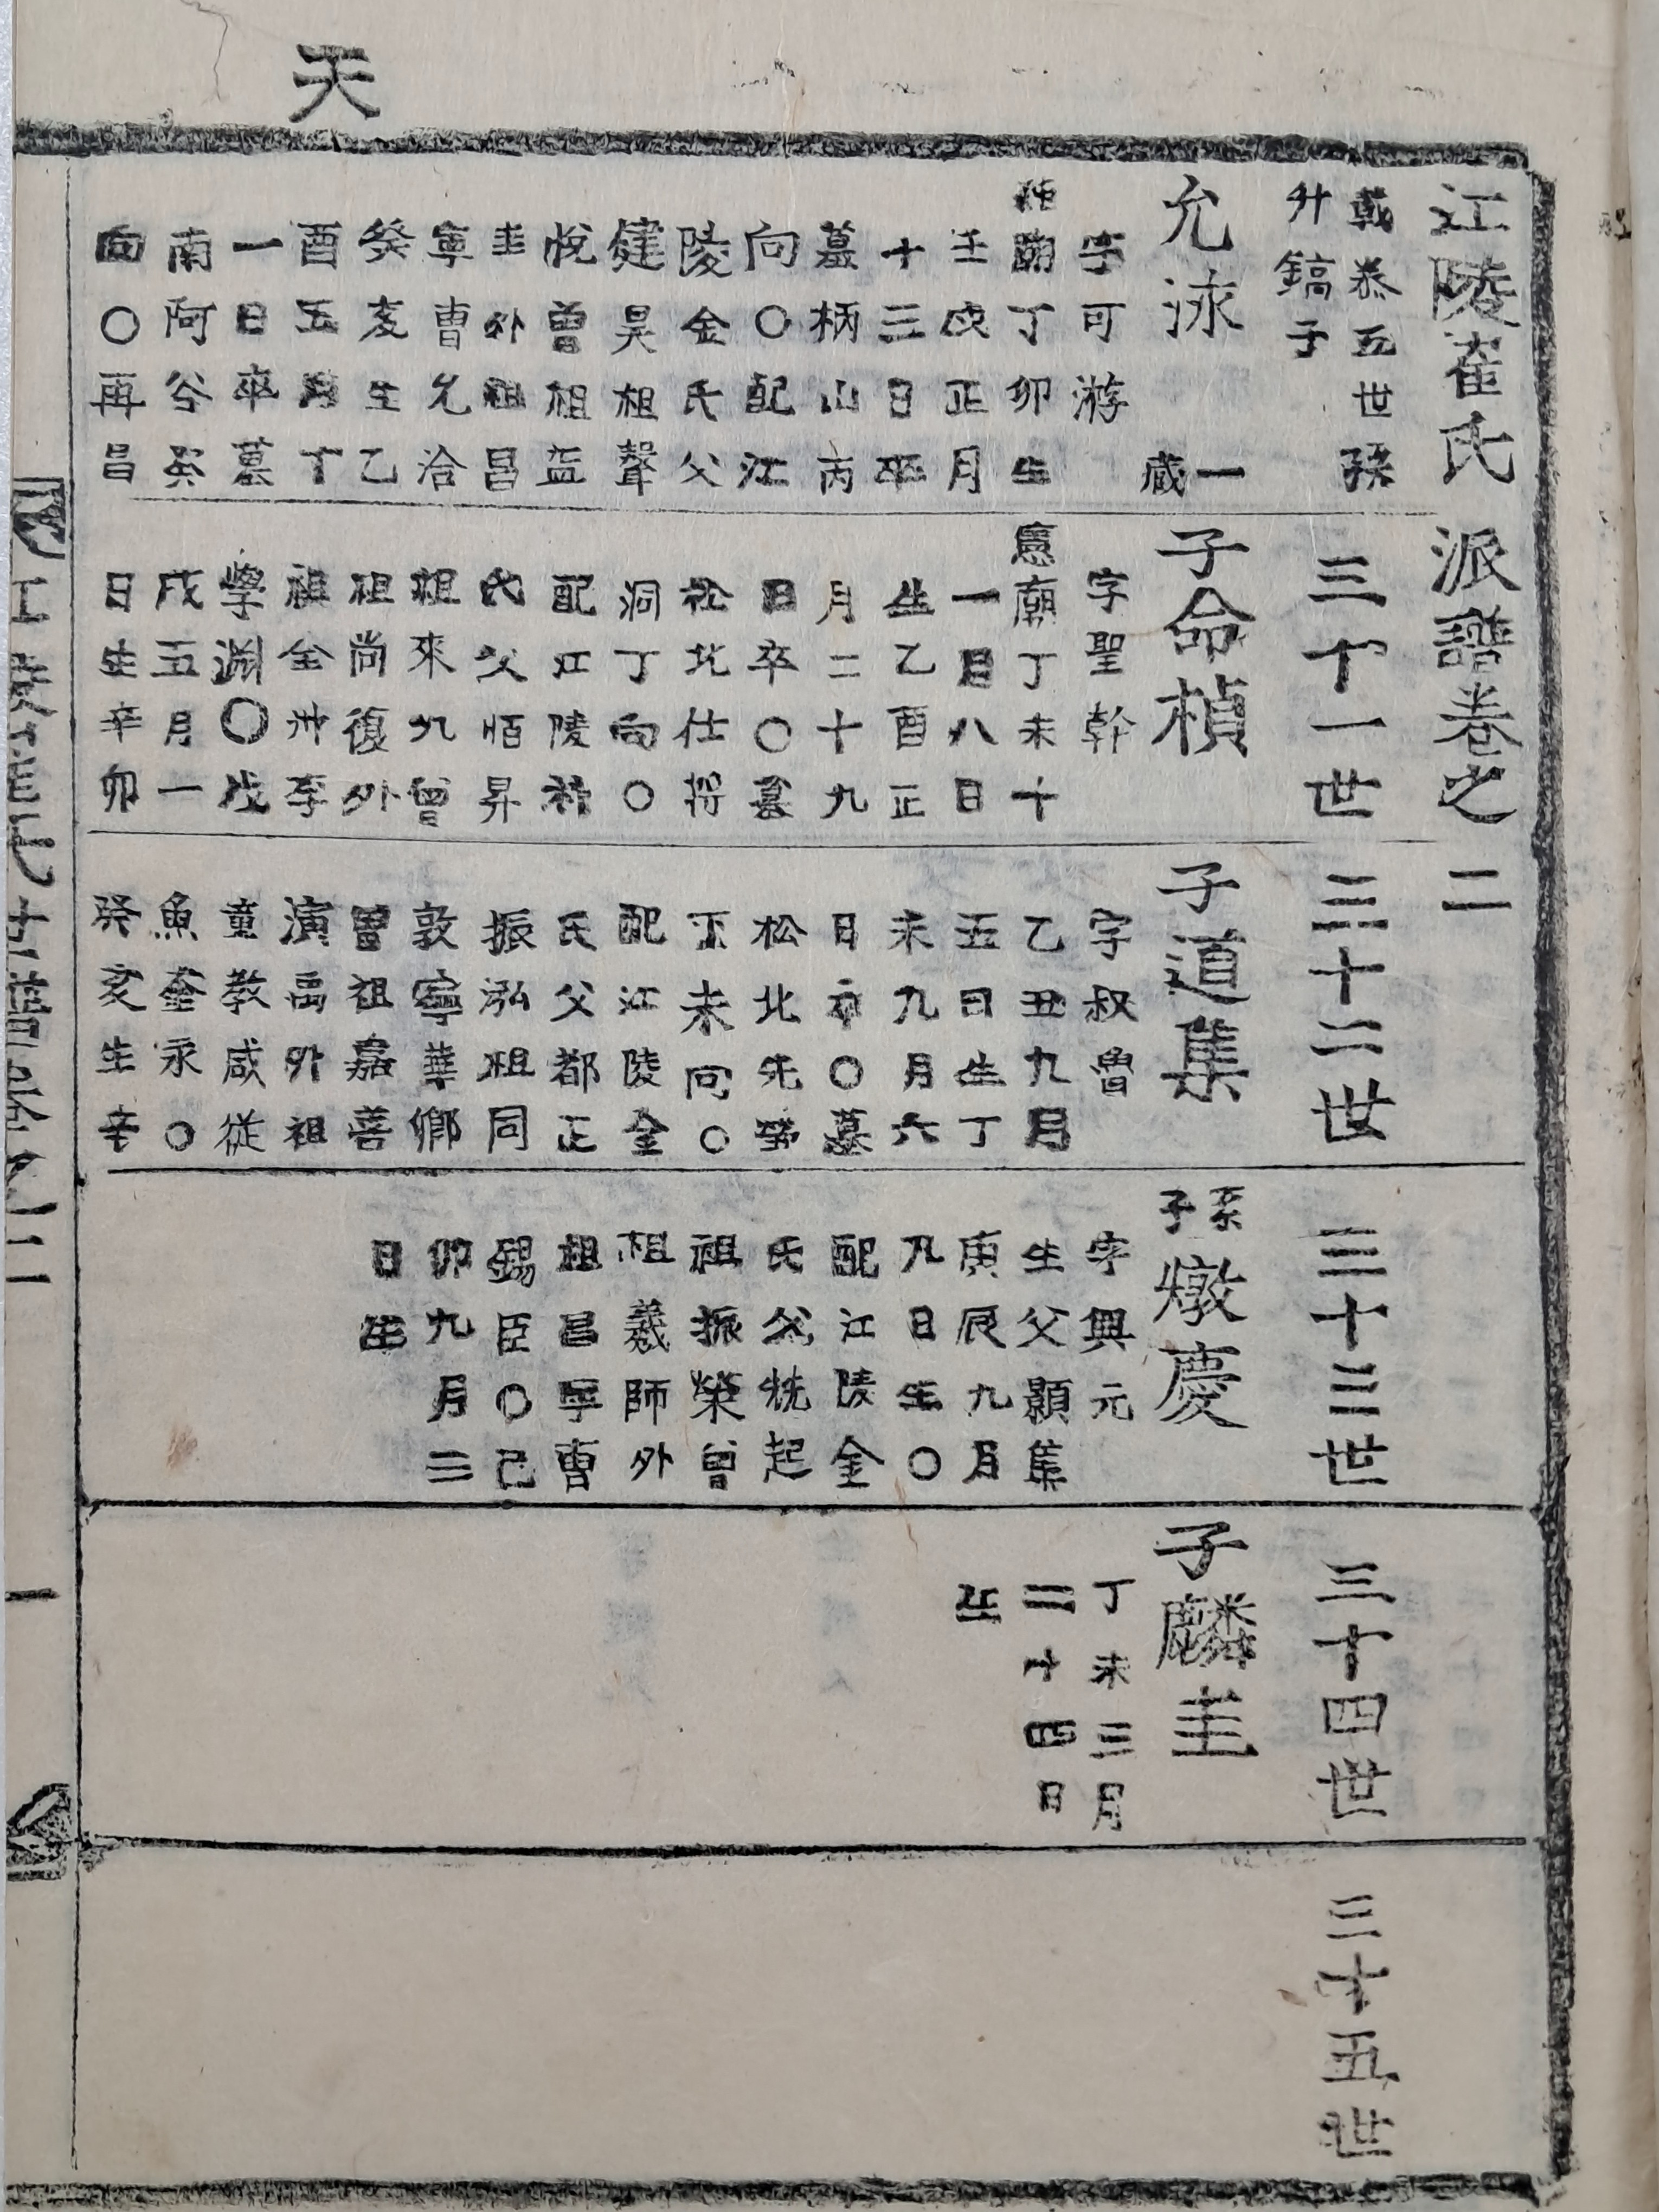 天
江陵崔氏派譜卷之二
戟恭五世孫
升鎬子
允泳
一
藏
字可游
純廟丁卯生
壬戌正月
十三日卒
墓柄山丙
向〇配江
陵金氏父
健昊祖聲
悅曾祖益
圭外祖昌
寧曹允洽
癸亥生乙
酉五月十
一日卒墓
南阿谷巽
向〇再昌
三十一世
子命楨
字聖幹
憲廟丁未十
一月八日
生乙酉正
月二十九
日卒〇墓
松北仕得
洞丁向〇
配江陵
氏父昇
祖來九曾
祖尚復外
祖全州李
學淵〇戊
戌五月一
日生辛卯
三十二世
子道集
字叔曾
乙丑九月
五日生丁
未九月六
日卒〇墓
松北先塋
下未向〇
配江陵金
氏父都正
振泓祖同
敦寧華卿
曾祖嘉善
演禹外祖
童教咸從
魚奎永〇
癸亥生辛
三十三世
系子燉慶
字興元
生父顯集
庚辰九月
九日生〇
配江陵金
氏父起
祖振榮曾
祖羲師外
祖昌寧曹
錫臣〇己
卯九月三
日生
三十四世
子麟圭
丁未三月
二十四日
生
三十五世
江陵崔氏派譜卷之二
一